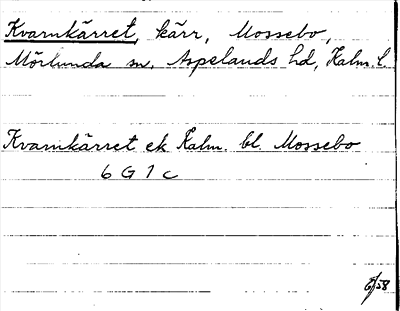 Kvarnkärret, kärr, Mossebo,
Mörlunda sn, Aspelands hd, Kalm. l.
Kvarnkärret ek Kalm. bl. Mossebo
6 G 1 c
6/58